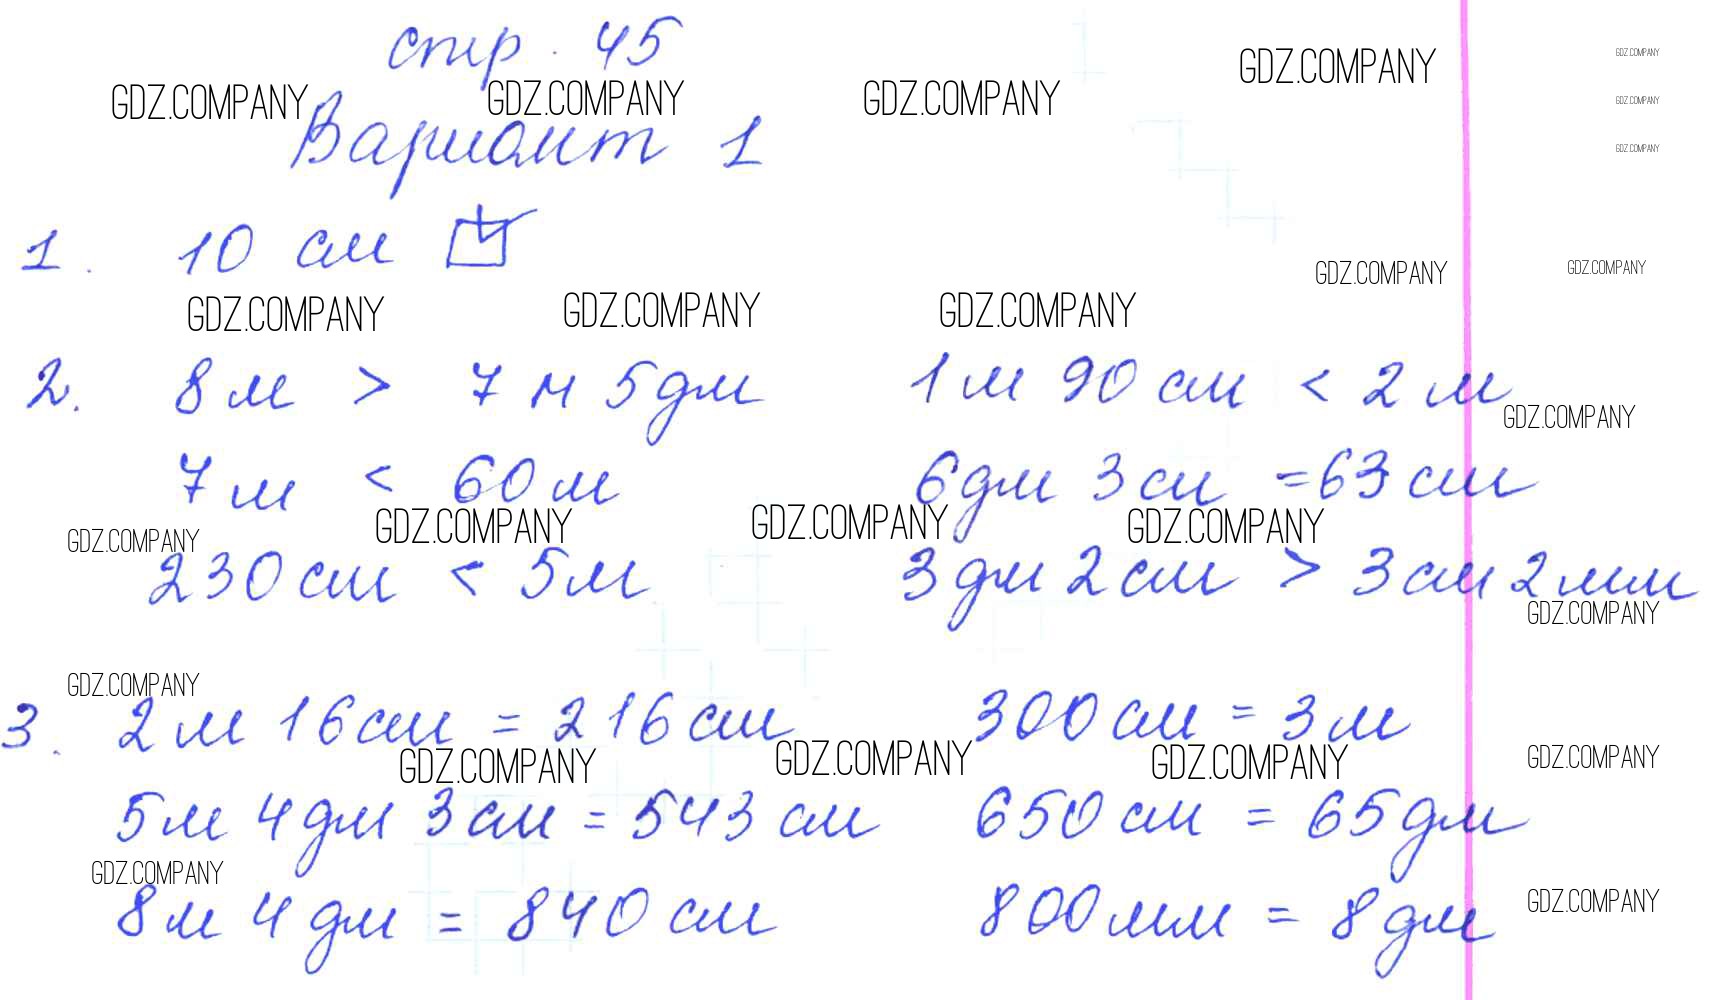 стр. 45
GDZ.COMPANY GDZ.COMPANY GDZ.COMPANY GDZ.COMPANY GDZ.COMPANY
GDZ.COMPANY
Вариант 1
GDZ.COMPANY
1. 10 см
GDZ.COMPANY GDZ.COMPANY
GDZ.COMPANY GDZ.COMPANY GDZ.COMPANY
2. 8 м > 7 м 5 дм 1 м 90 см < 2 м
GDZ.COMPANY
7 м < 60 м 6 дм 3 см = 63 см
GDZ.COMPANY GDZ.COMPANY GDZ.COMPANY GDZ.COMPANY
230 см < 5 м 3 дм 2 см > 3 см 2 мм
GDZ.COMPANY
GDZ.COMPANY
3. 2 м 16 см = 216 см 300 см = 3 м
GDZ.COMPANY GDZ.COMPANY GDZ.COMPANY GDZ.COMPANY
5 м 4 дм 3 см = 543 см 650 см = 65 дм
GDZ.COMPANY GDZ.COMPANY
8 м 4 дм = 840 см 800 мм = 8 дм